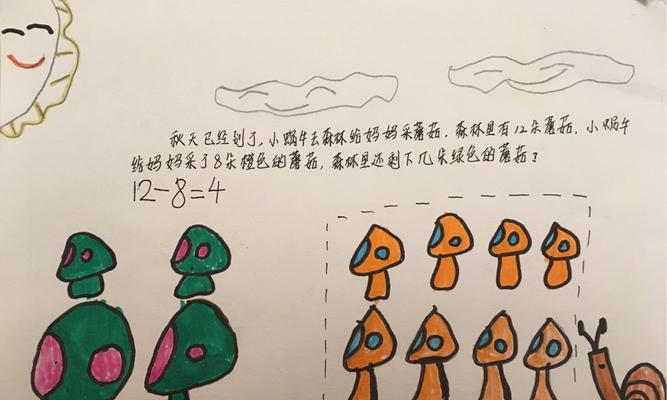 秋天已经到了，小蜗牛去森林给妈妈采蘑菇，森林里有12朵蘑菇，小蜗牛
给妈妈采了8朵橙色的蘑菇，森林里还剩下几朵绿色的蘑菇？
12-8=4